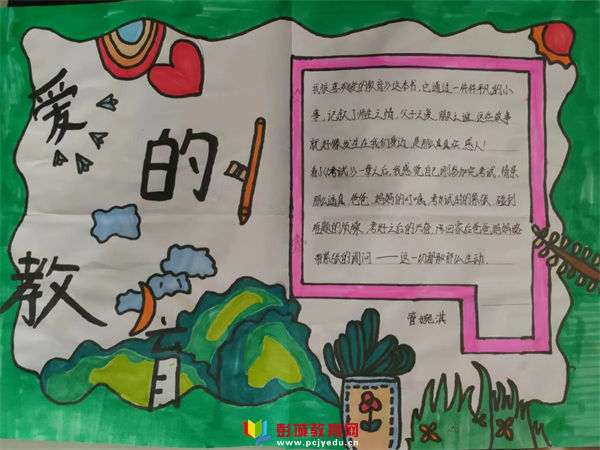 爱
的
教
育
我很喜欢爱的教育》这本书,它通过一件件平凡的小
事,记叙了师生之情,父子之爱,朋友之谊,这些故事
就好像发生在我们身边,是那么真实 感人!
看了《考试》一章之后,我感觉自己刚参加完考试,情景
那么逼真,爸爸,妈妈的叮嘱,考试时的紧张,碰到
难题的烦燥,考好之后的兴奋,回家后爸爸,妈妈略
带紧张的询问——这一切都那么生动
管婉淇
彭城教育网
www.pcjyedu.cn